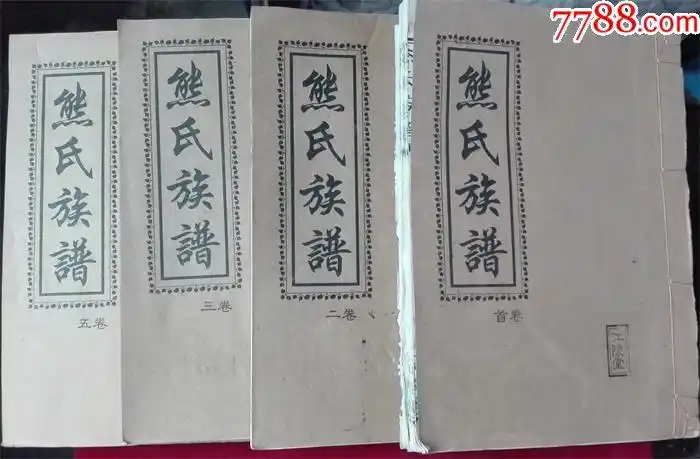 7788.com
熊氏族譜
五卷
熊氏族譜
三卷
熊氏族譜
二卷
熊氏族譜
首卷
江陵堂